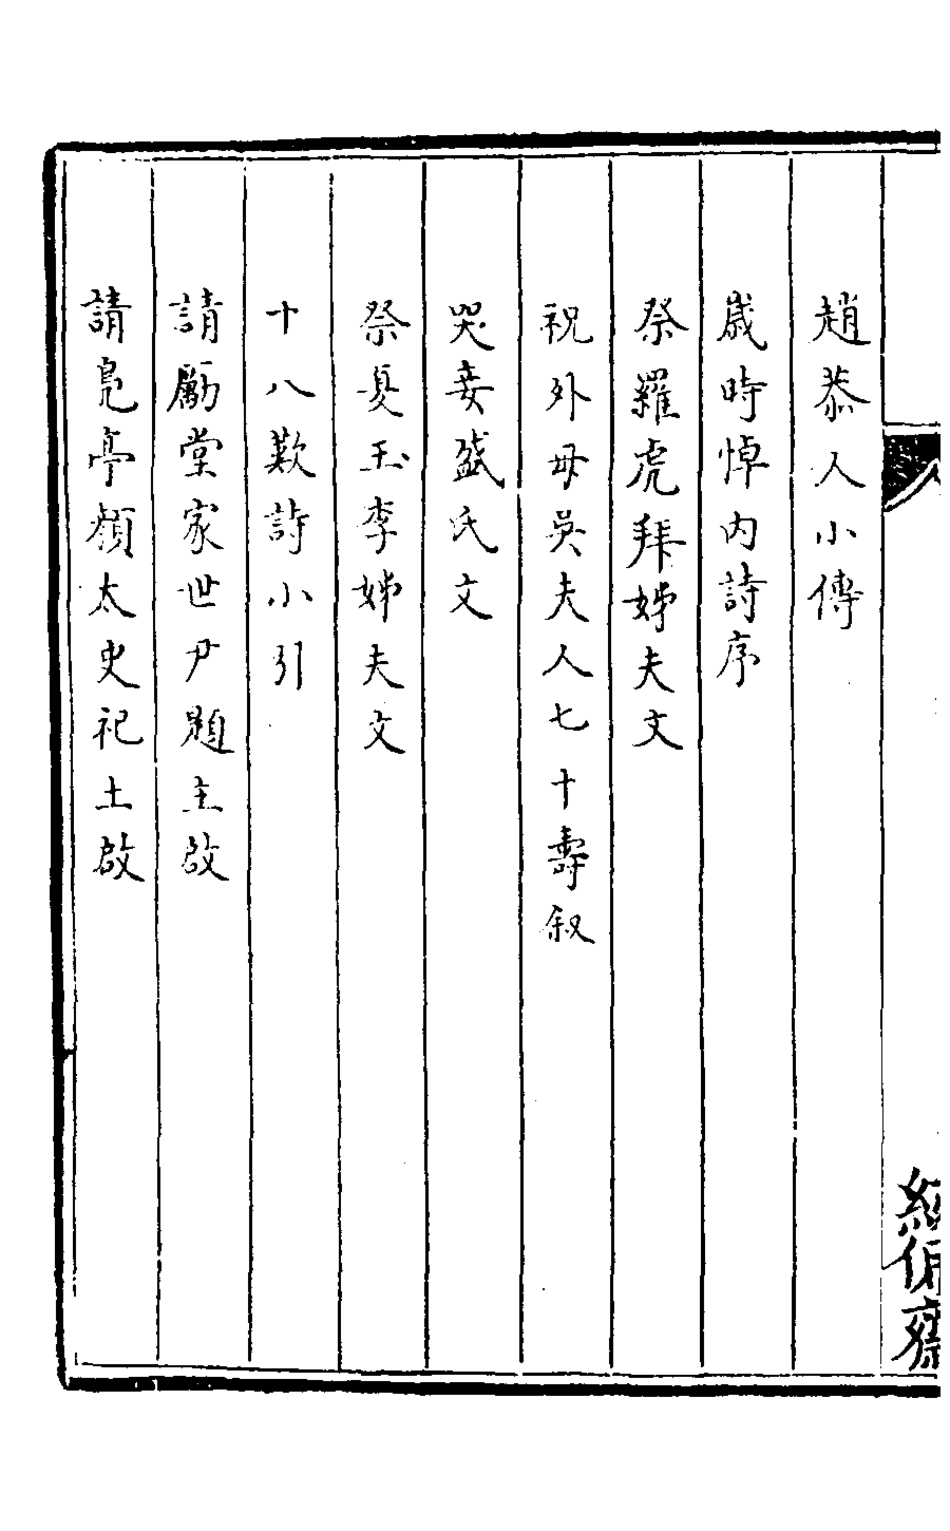 趙恭人小傳
歲時悼內詩序
祭羅虎拜姊夫文
祝外母吳夫人七十壽叙
哭妾盛氏文
祭夏玉李姊夫文
十八歎詩小引
請勵堂家世尹題主啟
請鳧亭顏太史祀土啟